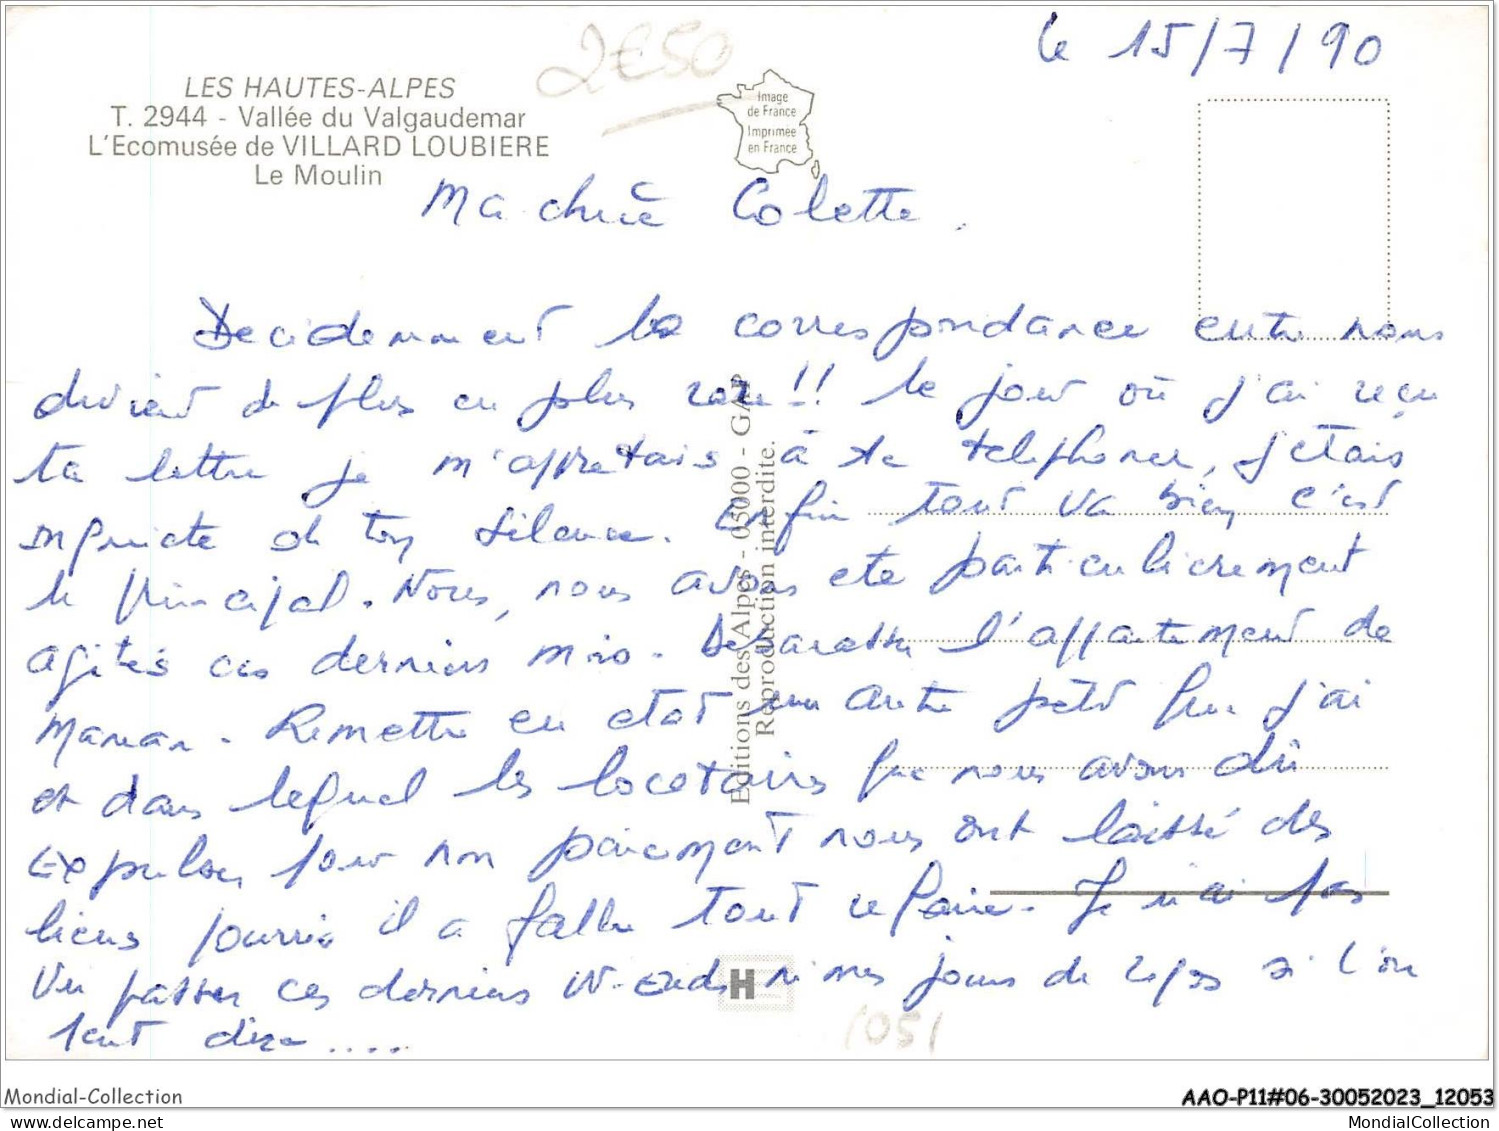 le 15/7/90
2€50
LES HAUTES-ALPES
T. 2944 - Vallée du Valgaudemar
L'Ecomusée de VILLARD LOUBIERE
Le Moulin
Image
de France
Imprimée
en France
Ma chère Colette.
Decidemment la correspondance entre nous
devient de plus en plus rare !! le jour où j'ai reçu
ta lettre je m'appretais à te telephoner, j'étais
inquiete de ton silence. Enfin tout va bien c'est
le principal. Nous, nous avons ete particulierement
agités ces derniers mois. Debarasser l'appartement de
Maman. Remettre en etat un autre petit que j'ai
et dans lequel les locataires que nous avons dû
expulser pour non paiement nous ont laissé des
lieux pourris il a fallu tout refaire. Je n'ai pas
vu passer ces derniers W-ends ni mes jours de repos si l'on
peut dire....
Editions des Alpes - 05000 - GAP
Reproduction interdite.
H
(05)
Mondial-Collection
AAO-P11#06-30052023_12053
MondialCollection